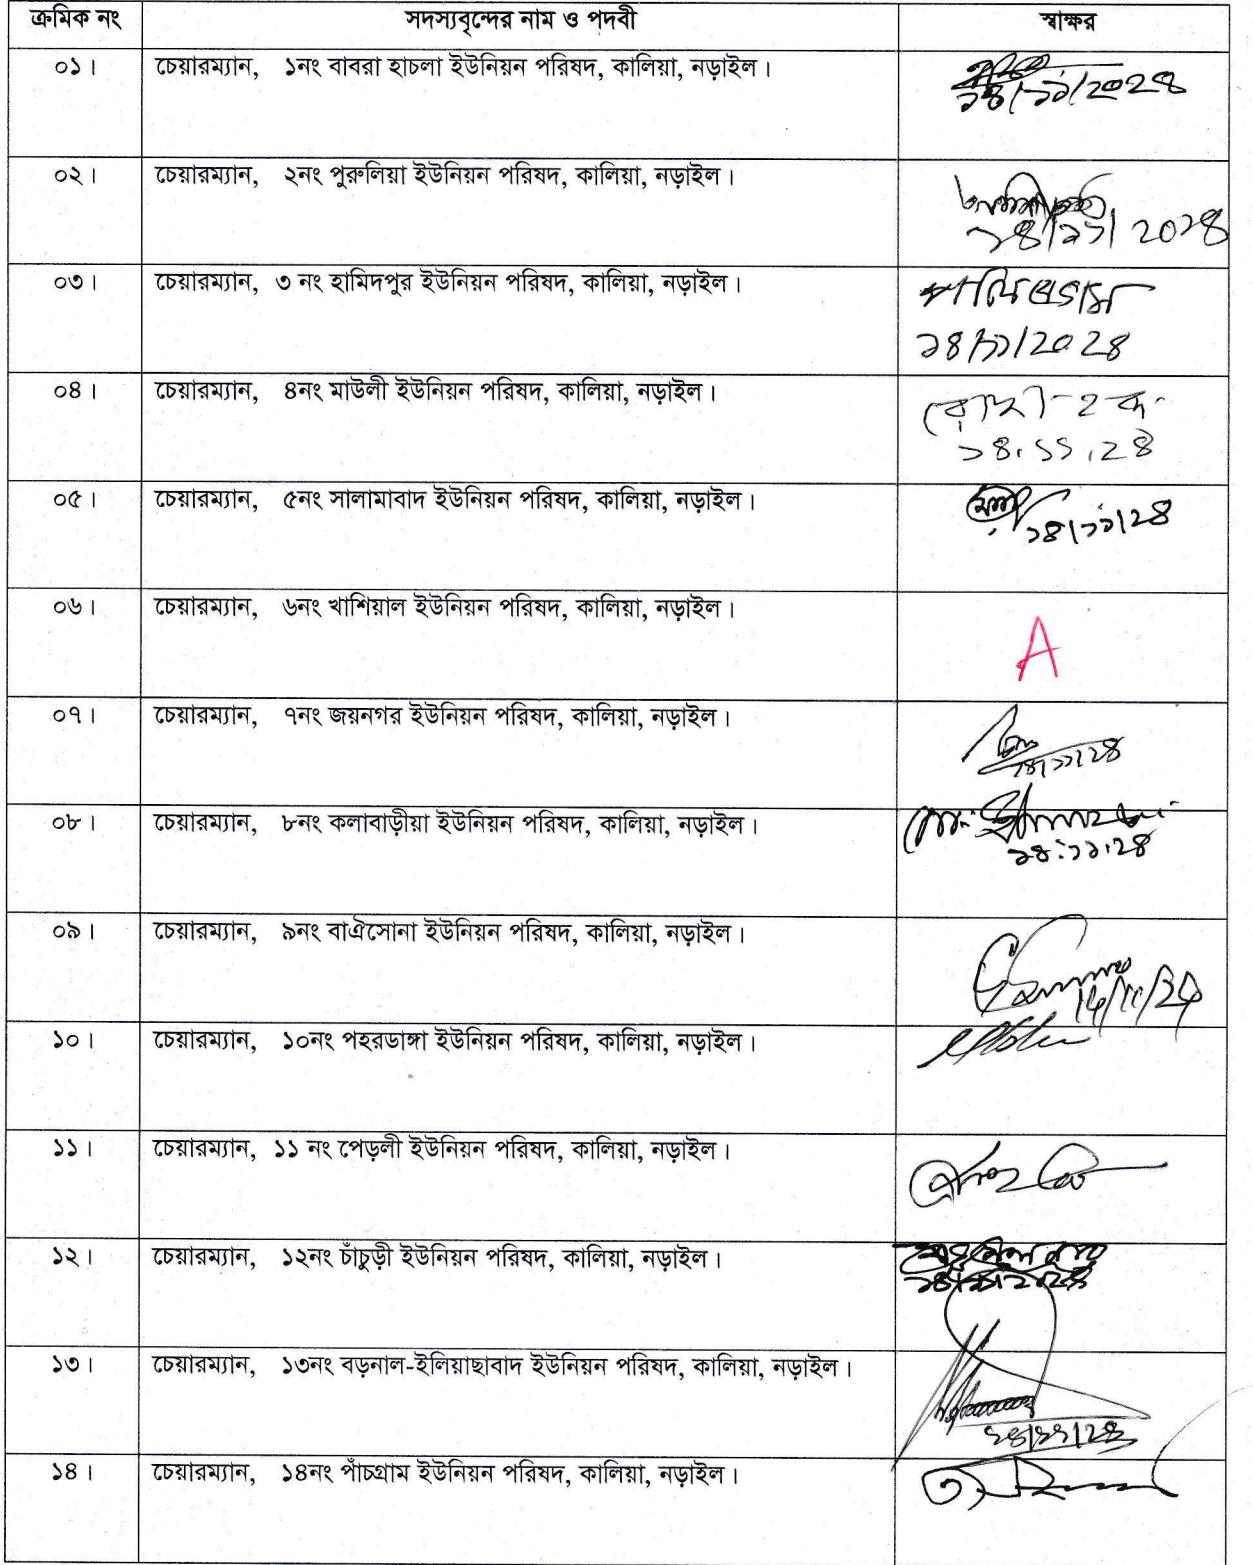 ক্রমিক নং সদস্যবৃন্দের নাম ও পদবী স্বাক্ষর
০১। চেয়ারম্যান, ১নং বাবরা হাচলা ইউনিয়ন পরিষদ, কালিয়া, নড়াইল।
১৪/১১/২০২৪
০২। চেয়ারম্যান, ২নং পুরুলিয়া ইউনিয়ন পরিষদ, কালিয়া, নড়াইল।
১৪/১১/২০২৪
০৩। চেয়ারম্যান, ৩ নং হামিদপুর ইউনিয়ন পরিষদ, কালিয়া, নড়াইল।
১৪/১১/২০২৪
০৪। চেয়ারম্যান, ৪নং মাউলী ইউনিয়ন পরিষদ, কালিয়া, নড়াইল।
১৪.১১.২৪
০৫। চেয়ারম্যান, ৫নং সালামাবাদ ইউনিয়ন পরিষদ, কালিয়া, নড়াইল।
১৪/১১/২৪
০৬। চেয়ারম্যান, ৬নং খাশিয়াল ইউনিয়ন পরিষদ, কালিয়া, নড়াইল।
A
০৭। চেয়ারম্যান, ৭নং জয়নগর ইউনিয়ন পরিষদ, কালিয়া, নড়াইল।
১৪/১১/২৪
০৮। চেয়ারম্যান, ৮নং কলাবাড়ীয়া ইউনিয়ন পরিষদ, কালিয়া, নড়াইল।
১৪.১১.২৪
০৯। চেয়ারম্যান, ৯নং বাঐসোনা ইউনিয়ন পরিষদ, কালিয়া, নড়াইল।
14/11/24
১০। চেয়ারম্যান, ১০নং পহরডাঙ্গা ইউনিয়ন পরিষদ, কালিয়া, নড়াইল।
১১। চেয়ারম্যান, ১১ নং পেড়লী ইউনিয়ন পরিষদ, কালিয়া, নড়াইল।
১২। চেয়ারম্যান, ১২নং চাঁচুড়ী ইউনিয়ন পরিষদ, কালিয়া, নড়াইল।
১৪/১১/২০২৪
১৩। চেয়ারম্যান, ১৩নং বড়নাল-ইলিয়াছাবাদ ইউনিয়ন পরিষদ, কালিয়া, নড়াইল।
১৪/১১/২৪
১৪। চেয়ারম্যান, ১৪নং পাঁচগ্রাম ইউনিয়ন পরিষদ, কালিয়া, নড়াইল।